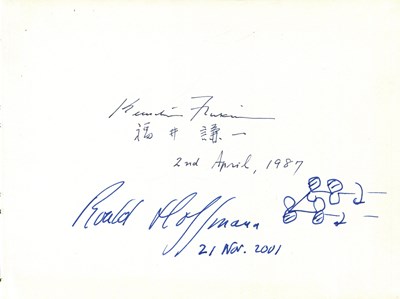 Kenichi Fukui
福井謙一
2nd April, 1987
Roald Hoffmann
21 Nov. 2001